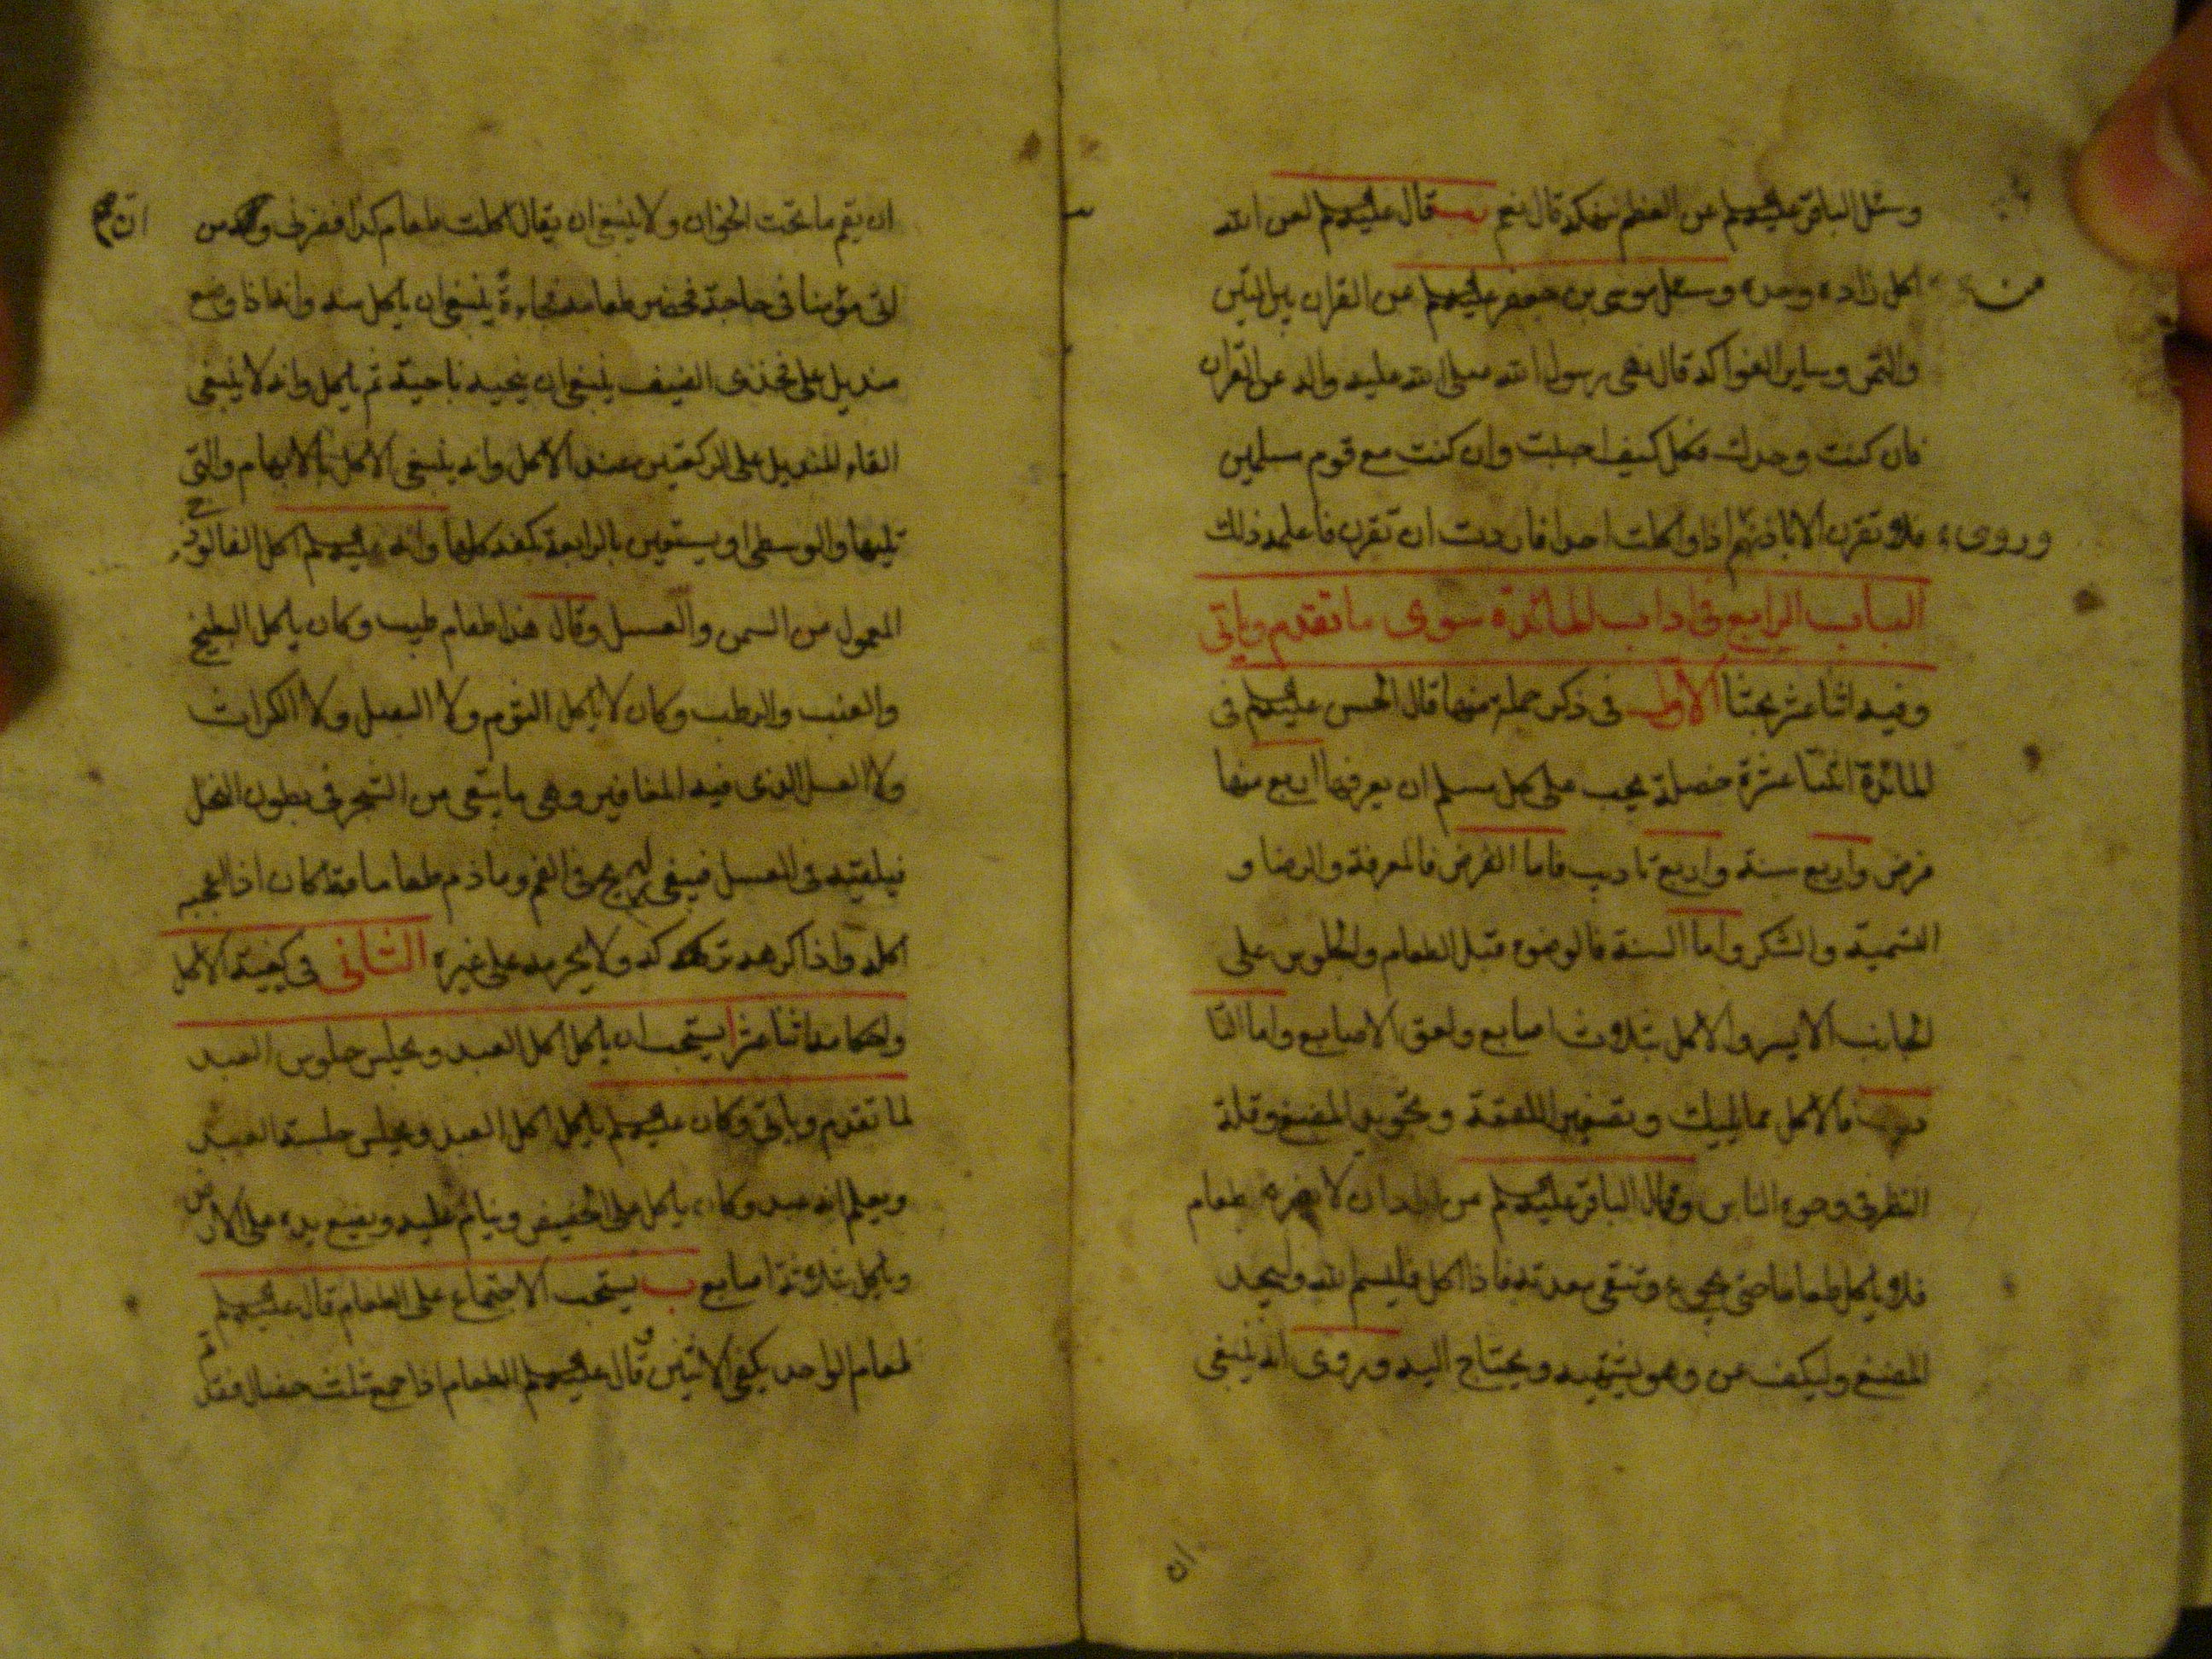 وسئل الباقر عليه السلم عن العظم ننهكه قال نعم يب قال عليه السلم لعن الله
من اكل زاده وحده وسئل موسى بن جعفر عليه السلم عن القران بين التين
والتمر وساير الفواكه قال نهى رسول الله صلى الله عليه واله عن القران
فان كنت وحدك فكل كيف احببت وان كنت مع قوم مسلمين
فلا تقرن الا باذنهم وروى اذا واكلت احدا فاردت ان تقرن فاعلمه ذلك
الباب الرابع فى اداب المائدة سوى ما تقدم وياتى
وفيه اثنا عشر بحثا الاول فى ذكر جملة منها قال الحسن عليه السلم فى
المائدة اثنتا عشرة خصلة يجب على كل مسلم ان يعرفها اربع منها
فرض واربع سنة واربع تاديب فاما الفرض فالمعرفة والرضا و
التسمية والشكر واما السنة فالوضوء قبل الطعام والجلوس على
الجانب الايسر والاكل بثلاث اصابع ولعق الاصابع واما التا
ديب فالاكل مما يليك وتصغير اللقمة وتجويد المضغ وقلة
النظر فى وجوه الناس وقال الباقر عليه السلم من اراد ان لا يضره طعام
فلا ياكل طعاما حتى يجوع وتنقى معدته فاذا اكل فليسم الله وليجد
المضغ وليكف عن وهو يشتهيه ويحتاج اليه وروى انه ينبغى
ان
ان يقم ما تحت الخوان ولا ينبغى ان يقال اكلت طعام كذا فضرنى وان من
اتى مؤمنا فى حاجة فحضر طعامه فجاءة ينبغى ان ياكل منه وانه اذا وضع
منديل على فخذى الضيف ينبغى ان ينحيه ناحية ثم ياكل وانه لا ينبغى
القاء المنديل على الركبتين عند الاكل وانه ينبغى الاكل بالابهام والتى
تليها والوسطى او يستعين بالرابعة بكفه كلها وانه عليه السلم اكل الفالوذج
المعمول من السمن والعسل وقال هذا طعام طيب وكان ياكل البطيخ
والعنب والرطب وكان لا ياكل الثوم ولا البصل ولا الكراث
ولا العسل الذى فيه المغافير وهى ما يبقى من الشجر فى بطون النحل
فيلقيه فى العسل فيبقى ريح فى الفم وما ذم طعاما قط كان اذا اعجبه
اكله واذا كرهه تركه ولا يحرمه على غيره الثانى فى كيفية الاكل
واحكامه اثنا عشر ا يستحب ان ياكل اكل العبد ويجلس جلوس العبد
لما تقدم وياتى وكان عليه السلم ياكل اكل العبد ويجلس جلسة العبد
ويعلم انه عبد وكان ياكل على الحضيض وينام عليه ويضع يده على الارض
وياكل بثلاثة اصابع ب يستحب الاجتماع على الطعام قال عليه السلم
طعام الواحد يكفى الاثنين وقال عليه السلم الطعام اذا جمع ثلث خصال فقد تم